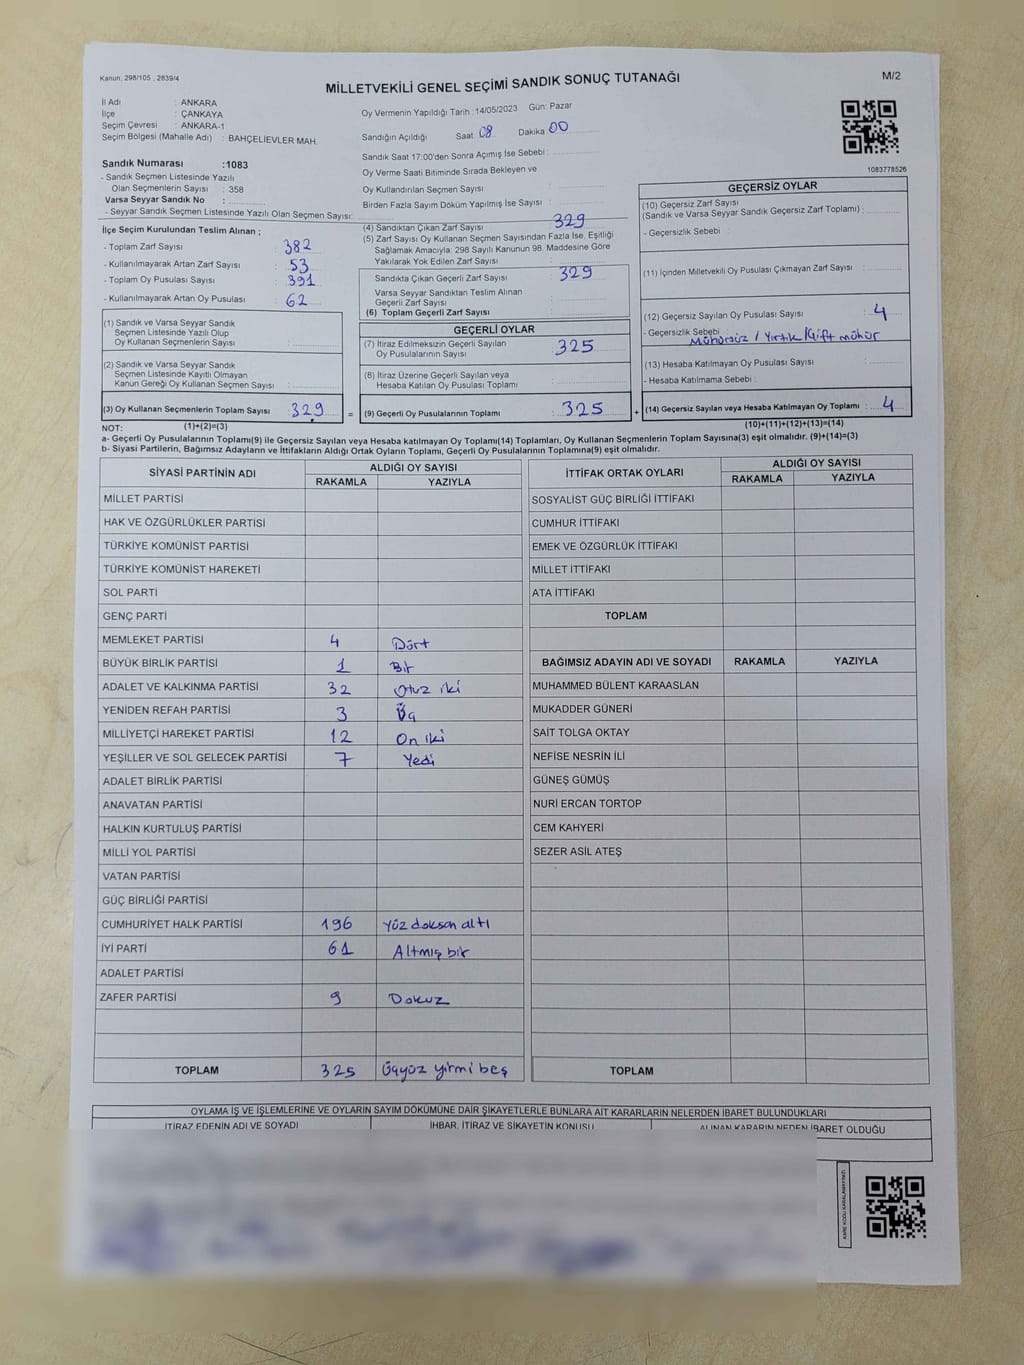 Kanun, 298/105 , 2839/4
MİLLETVEKİLİ GENEL SEÇİMİ SANDIK SONUÇ TUTANAĞI
M/2
İl Adı : ANKARA
İlçe : ÇANKAYA
Seçim Çevresi : ANKARA-1
Seçim Bölgesi (Mahalle Adı) : BAHÇELİEVLER MAH.
Sandık Numarası :1083
- Sandık Seçmen Listesinde Yazılı
Olan Seçmenlerin Sayısı : 358
Varsa Seyyar Sandık No :
- Seyyar Sandık Seçmen Listesinde Yazılı Olan Seçmen Sayısı:
Oy Vermenin Yapıldığı Tarih : 14/05/2023 Gün: Pazar
Sandığın Açıldığı Saat: 08 Dakika 00
Sandık Saat 17:00'den Sonra Açımış İse Sebebi :
Oy Verme Saati Bitiminde Sırada Bekleyen ve
Oy Kullandırılan Seçmen Sayısı :
Birden Fazla Sayım Döküm Yapılmış İse Sayısı :
1083778526
İlçe Seçim Kurulundan Teslim Alınan ;
- Toplam Zarf Sayısı : 382
- Kullanılmayarak Artan Zarf Sayısı : 53
- Toplam Oy Pusulası : 391
- Kullanılmayarak Artan Oy Pusulası : 62
(1) Sandık ve Varsa Seyyar Sandık
Seçmen Listesinde Yazılı Olup
Oy Kullanan Seçmenlerin Sayısı :
(2) Sandık ve Varsa Seyyar Sandık
Seçmen Listesinde Kayıtlı Olmayan
Kanun Gereği Oy Kullanan Seçmen Sayısı :
(3) Oy Kullanan Seçmenlerin Toplam Sayısı : 329 =
(4) Sandıktan Çıkan Zarf Sayısı : 329
(5) Zarf Sayısı Oy Kullanan Seçmen Sayısından Fazla İse, Eşitliği
Sağlamak Amacıyla: 298 Sayılı Kanunun 98. Maddesine Göre
Yakılarak Yok Edilen Zarf Sayısı :
Sandıkta Çıkan Geçerli Zarf Sayısı : 329
Varsa Seyyar Sandıktan Teslim Alınan
Geçerli Zarf Sayısı :
(6) Toplam Geçerli Zarf Sayısı :
GEÇERLİ OYLAR
(7) İtiraz Edilmeksizin Geçerli Sayılan
Oy Pusulalarının Sayısı : 325
(8) İtiraz Üzerine Geçerli Sayılan veya
Hesaba Katılan Oy Pusulası Toplamı :
(9) Geçerli Oy Pusulalarının Toplamı : 325 +
GEÇERSİZ OYLAR
(10) Geçersiz Zarf Sayısı
(Sandık ve Varsa Seyyar Sandık Geçersiz Zarf Toplamı) :
- Geçersizlik Sebebi :
(11) İçinden Milletvekili Oy Pusulası Çıkmayan Zarf Sayısı :
(12) Geçersiz Sayılan Oy Pusulası Sayısı : 4
- Geçersizlik Sebebi : Mühürsüz / Yırtık / Çift mühür
(13) Hesaba Katılmayan Oy Pusulası Sayısı :
- Hesaba Katılmama Sebebi :
(14) Geçersiz Sayılan veya Hesaba Katılmayan Oy Toplamı : 4
NOT: (1)+(2)=(3)
(10)+(11)+(12)+(13)=(14)
a- Geçerli Oy Pusulalarının Toplamı(9) ile Geçersiz Sayılan veya Hesaba katılmayan Oy Toplamı(14) Toplamları, Oy Kullanan Seçmenlerin Toplam Sayısına(3) eşit olmalıdır. (9)+(14)=(3)
b- Siyasi Partilerin, Bağımsız Adayların ve İttifakların Aldığı Ortak Oyların Toplamı, Geçerli Oy Pusulalarının Toplamına(9) eşit olmalıdır.
SİYASİ PARTİNİN ADI ALDIĞI OY SAYISI
RAKAMLA YAZIYLA
MİLLET PARTİSİ
HAK VE ÖZGÜRLÜKLER PARTİSİ
TÜRKİYE KOMÜNİST PARTİSİ
TÜRKİYE KOMÜNİST HAREKETİ
SOL PARTİ
GENÇ PARTİ
MEMLEKET PARTİSİ 4 Dört
BÜYÜK BİRLİK PARTİSİ 1 Bir
ADALET VE KALKINMA PARTİSİ 32 Otuz iki
YENİDEN REFAH PARTİSİ 3 Üç
MİLLİYETÇİ HAREKET PARTİSİ 12 On iki
YEŞİLLER VE SOL GELECEK PARTİSİ 7 Yedi
ADALET BİRLİK PARTİSİ
ANAVATAN PARTİSİ
HALKIN KURTULUŞ PARTİSİ
MİLLİ YOL PARTİSİ
VATAN PARTİSİ
GÜÇ BİRLİĞİ PARTİSİ
CUMHURİYET HALK PARTİSİ 196 Yüz doksan altı
İYİ PARTİ 61 Altmış bir
ADALET PARTİSİ
ZAFER PARTİSİ 9 Dokuz
TOPLAM 325 Üçyüz yirmi beş
İTTİFAK ORTAK OYLARI ALDIĞI OY SAYISI
RAKAMLA YAZIYLA
SOSYALİST GÜÇ BİRLİĞİ İTTİFAKI
CUMHUR İTTİFAKI
EMEK VE ÖZGÜRLÜK İTTİFAKI
MİLLET İTTİFAKI
ATA İTTİFAKI
TOPLAM
BAĞIMSIZ ADAYIN ADI VE SOYADI RAKAMLA YAZIYLA
MUHAMMED BÜLENT KARAASLAN
MUKADDER GÜNERİ
SAİT TOLGA OKTAY
NEFİSE NESRİN İLİ
GÜNEŞ GÜMÜŞ
NURİ ERCAN TORTOP
CEM KAHYERİ
SEZER ASİL ATEŞ
TOPLAM
OYLAMA İŞ VE İŞLEMLERİNE VE OYLARIN SAYIM DÖKÜMÜNE DAİR ŞİKAYETLERLE BUNLARA AİT KARARLARIN NELERDEN İBARET BULUNDUKLARI
İTİRAZ EDENİN ADI VE SOYADI İHBAR, İTİRAZ VE ŞİKAYETİN KONUSU ALINAN KARARIN NEDEN İBARET OLDUĞU
KARE KODU KARALAMAYINIZ!